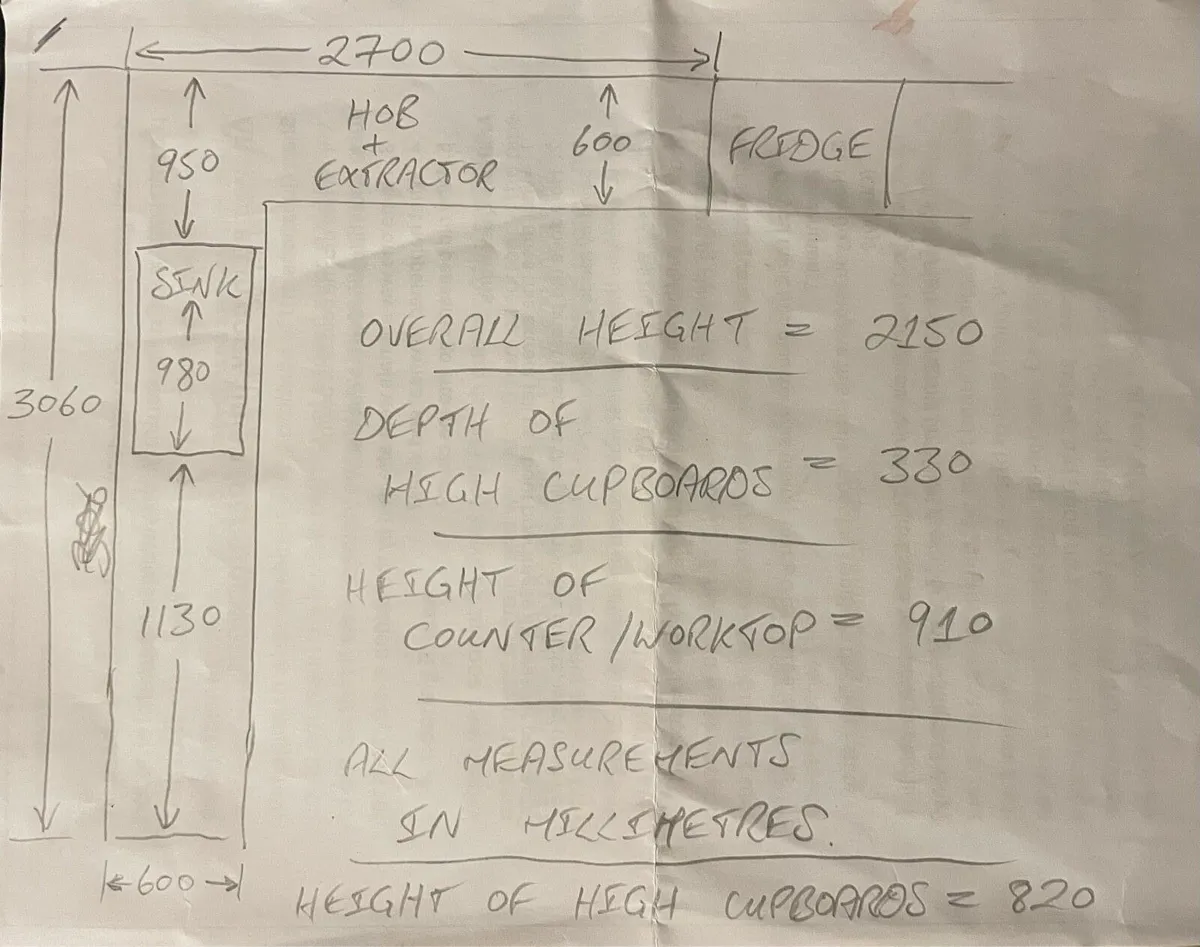 2700
950
HOB
+
EXTRACTOR
600
FRIDGE
SINK
980
3060
1130
600
OVERALL HEIGHT = 2150
DEPTH OF
HIGH CUPBOARDS = 330
HEIGHT OF
COUNTER/WORKTOP = 910
ALL MEASUREMENTS
IN MILLIMETRES.
HEIGHT OF HIGH CUPBOARDS = 820